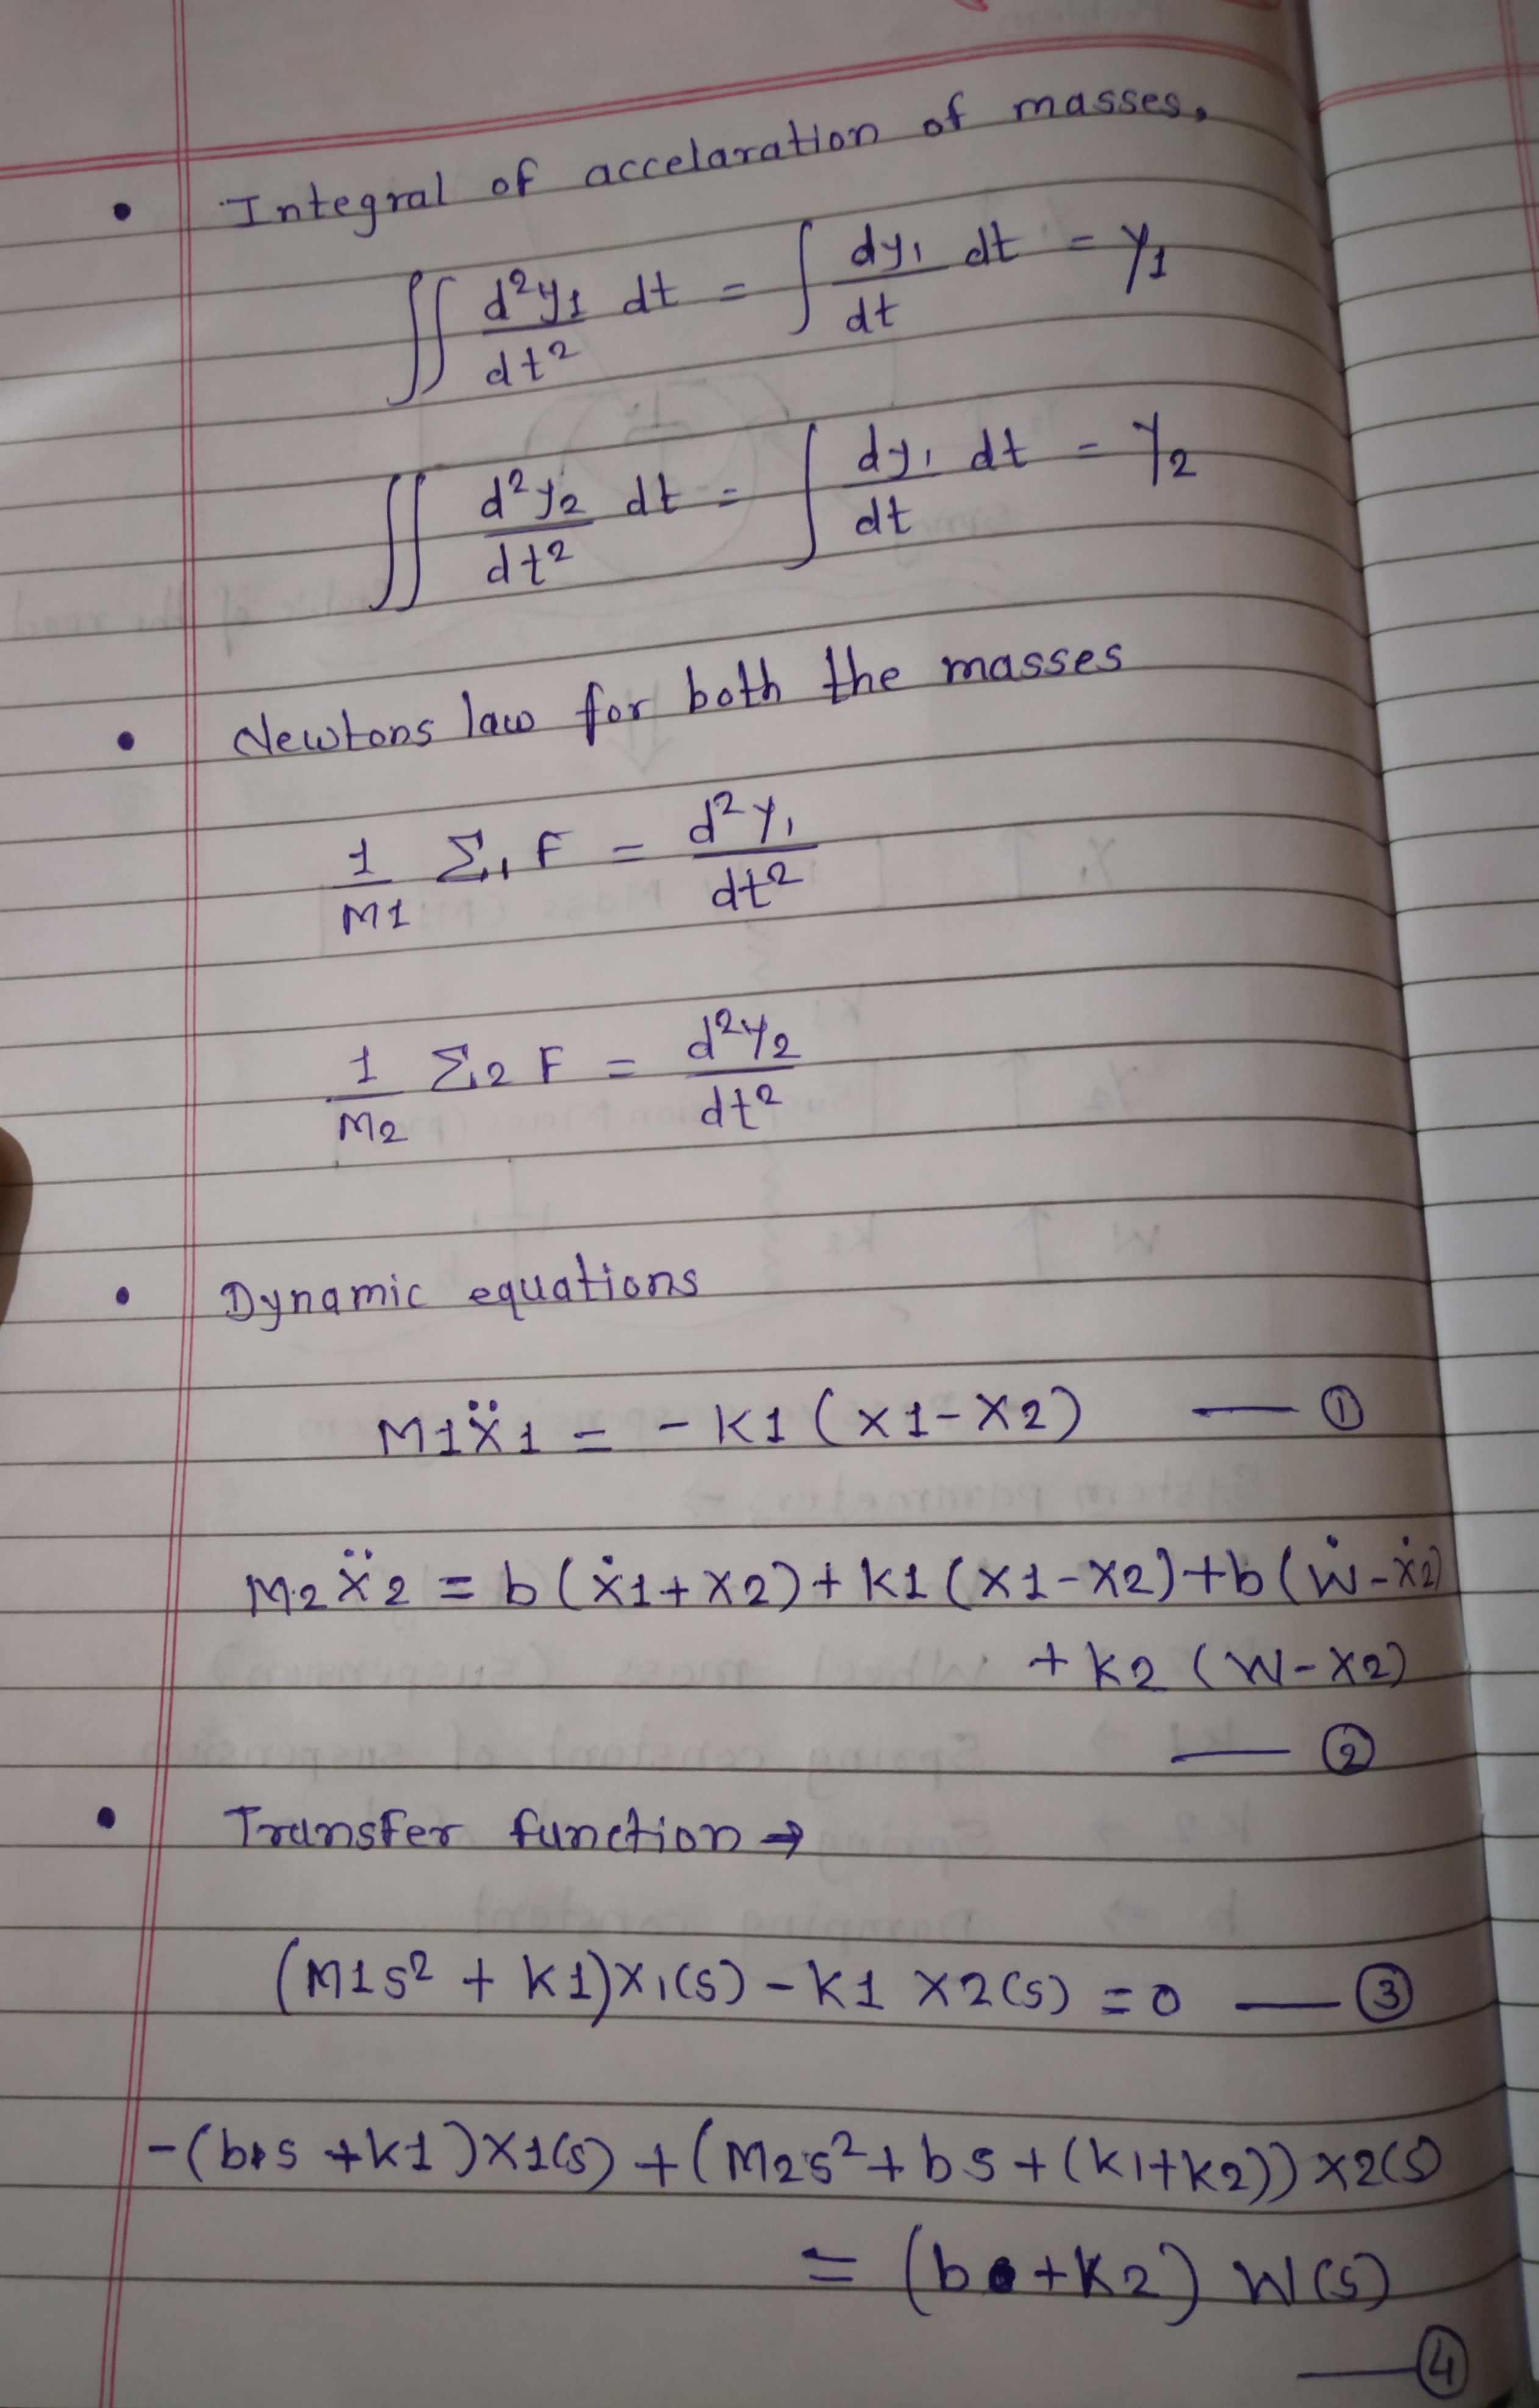 • Integral of accelaration of masses.
∬ d²y1/dt² dt = ∫ dy1/dt dt = y1
∬ d²y2/dt² dt = ∫ dy1/dt dt = y2
• Newtons law for both the masses
1/M1 Σ1 F = d²y1/dt²
1/M2 Σ2 F = d²y2/dt²
• Dynamic equations
M1Ẍ1 = - K1 (X1-X2) — ①
M2Ẍ2 = b(Ẋ1+X2)+K1(X1-X2)+b(Ẇ-Ẋ2)
+ K2 (W-X2)
— ②
• Transfer function →
(M1s² + K1)X1(s) - K1 X2(s) = 0 — ③
-(bs +K1)X1(s) + (M2s²+bs+(K1+K2))X2(s)
= (b +K2) W(s)
— ④